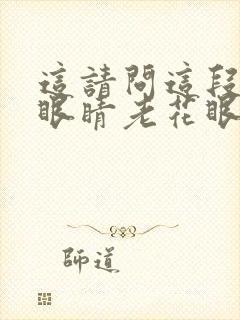 這請問這段
眼睛老花眼
師道